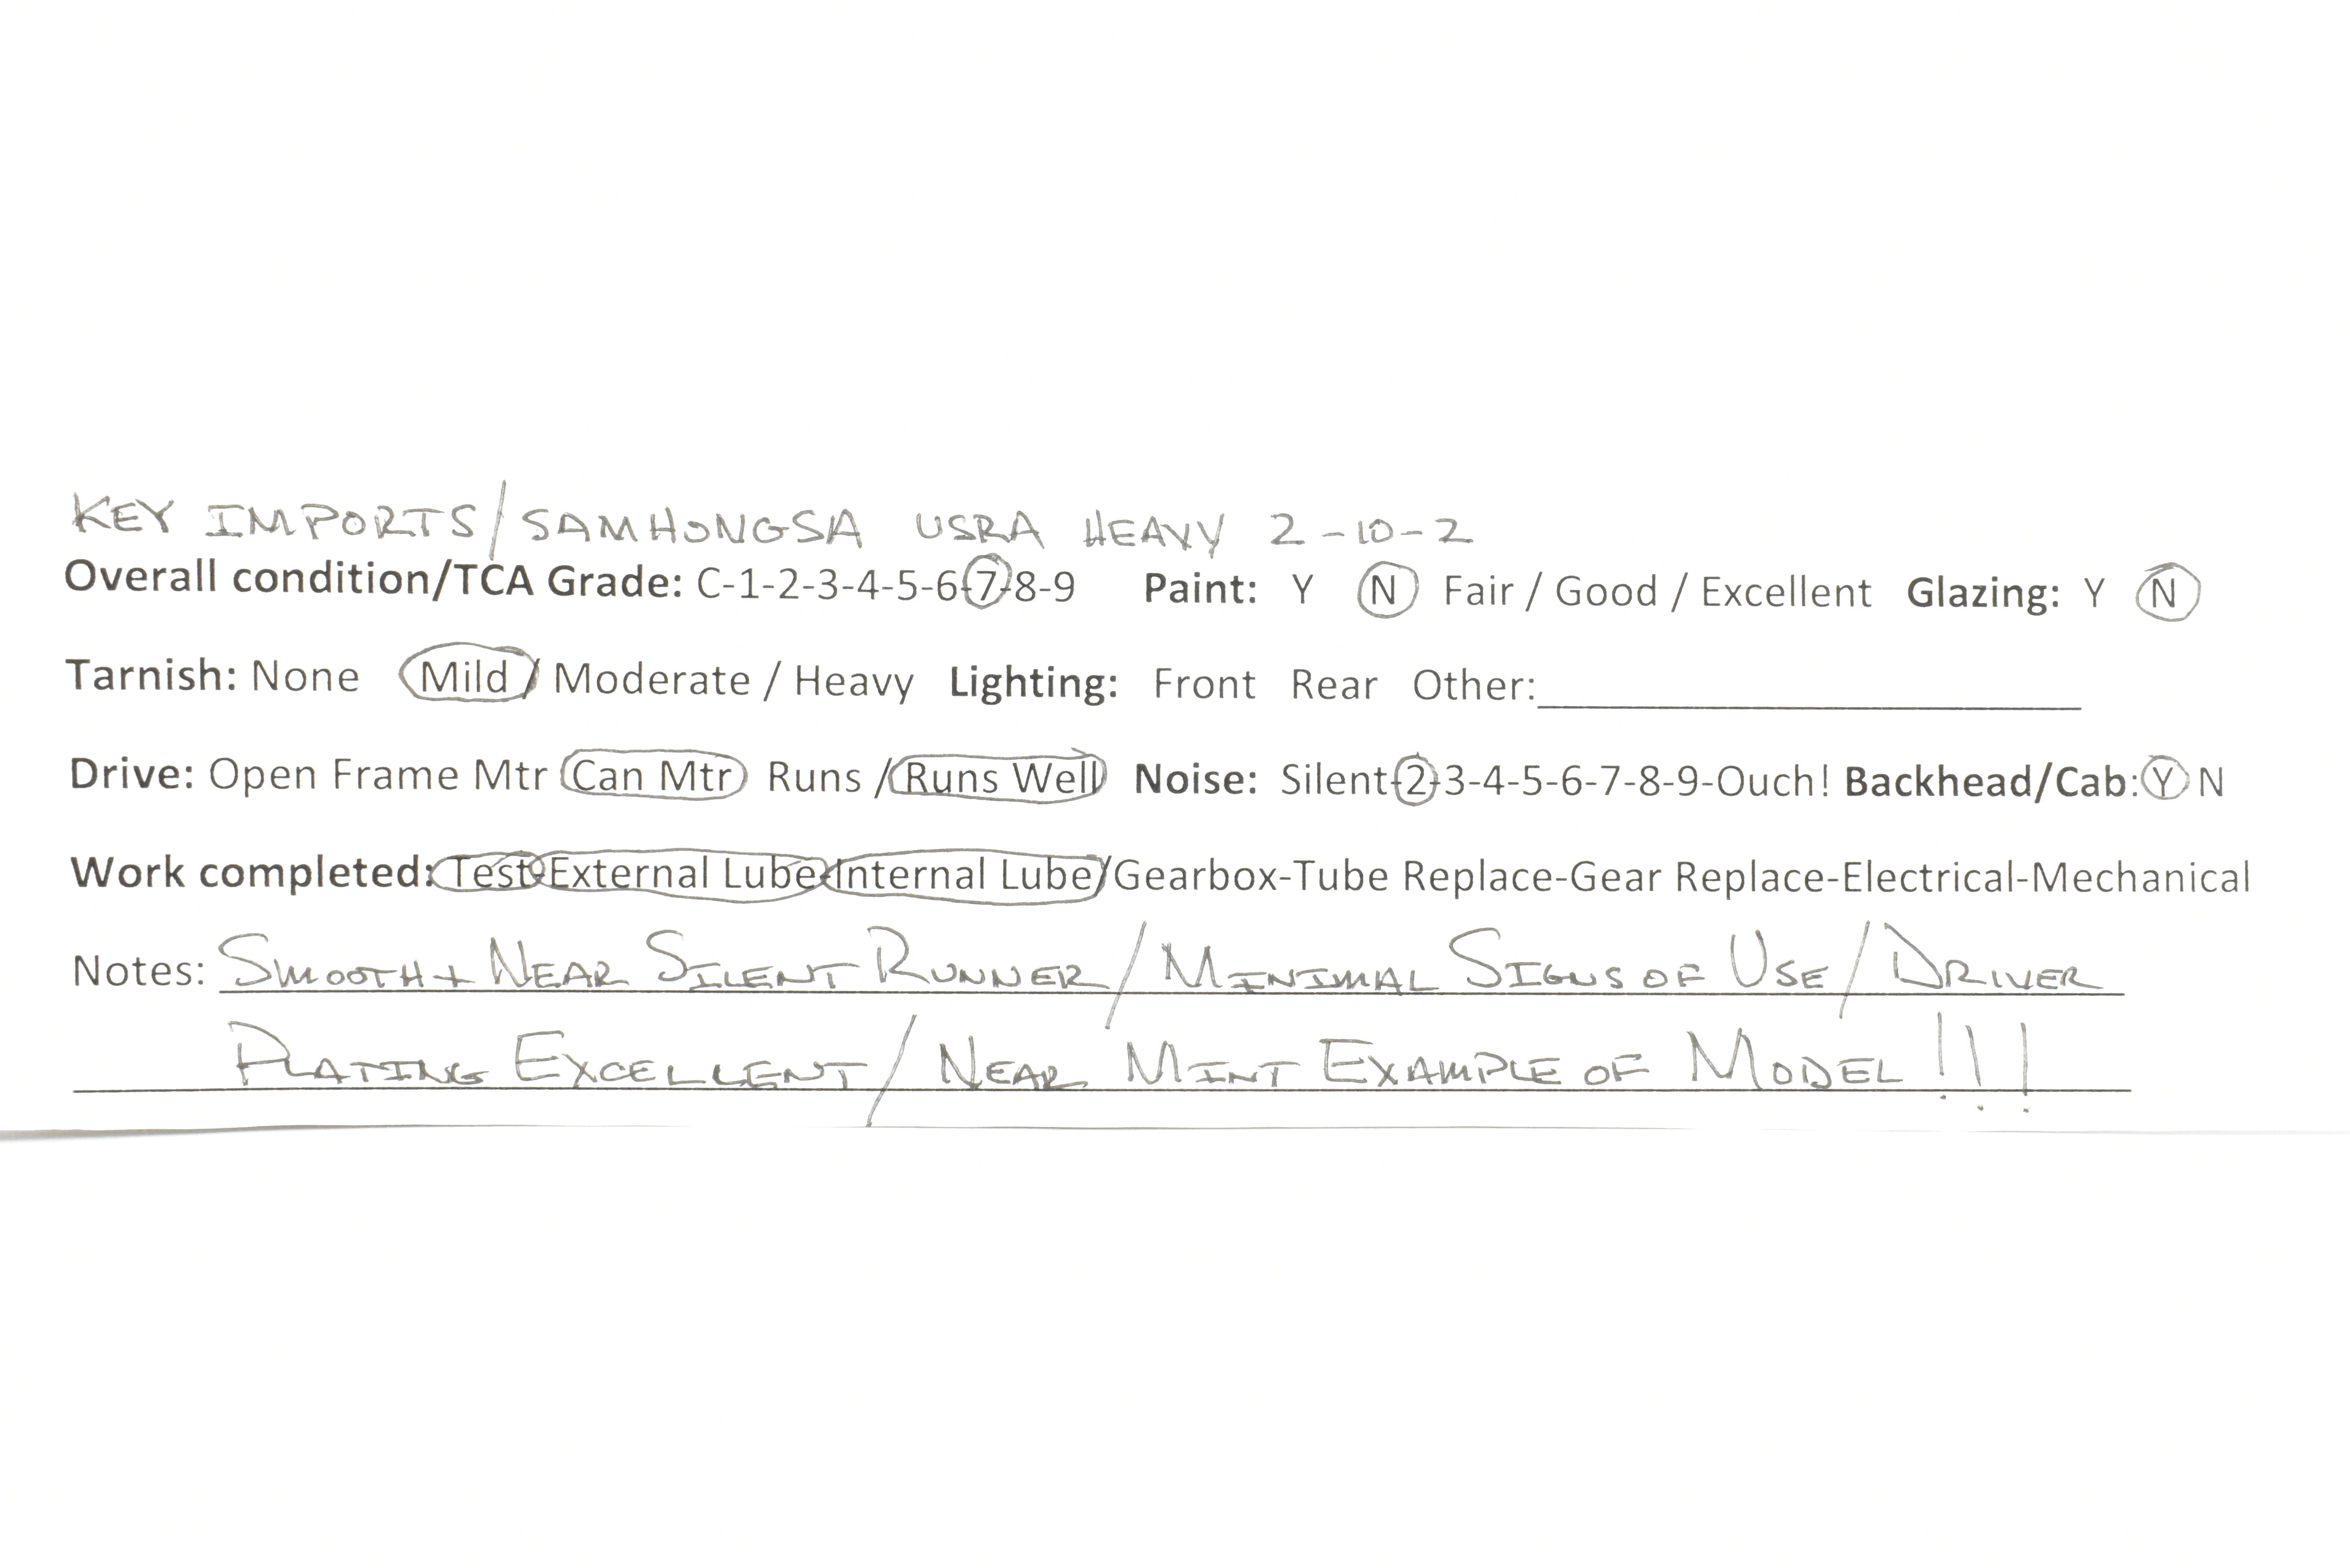 KEY IMPORTS/SAMHONGSA USRA HEAVY 2-10-2
Overall condition/TCA Grade: C-1-2-3-4-5-6-7-8-9 Paint: Y N Fair / Good / Excellent Glazing: Y N
Tarnish: None Mild / Moderate / Heavy Lighting: Front Rear Other:
Drive: Open Frame Mtr Can Mtr Runs / Runs Well Noise: Silent-2-3-4-5-6-7-8-9-Ouch! Backhead/Cab: Y N
Work completed: Test-External Lube-Internal Lube/Gearbox-Tube Replace-Gear Replace-Electrical-Mechanical
Notes: SMOOTH + NEAR SILENT RUNNER / MINIMAL SIGNS OF USE / DRIVER
PLATING EXCELLENT / NEAR MINT EXAMPLE OF MODEL!!!